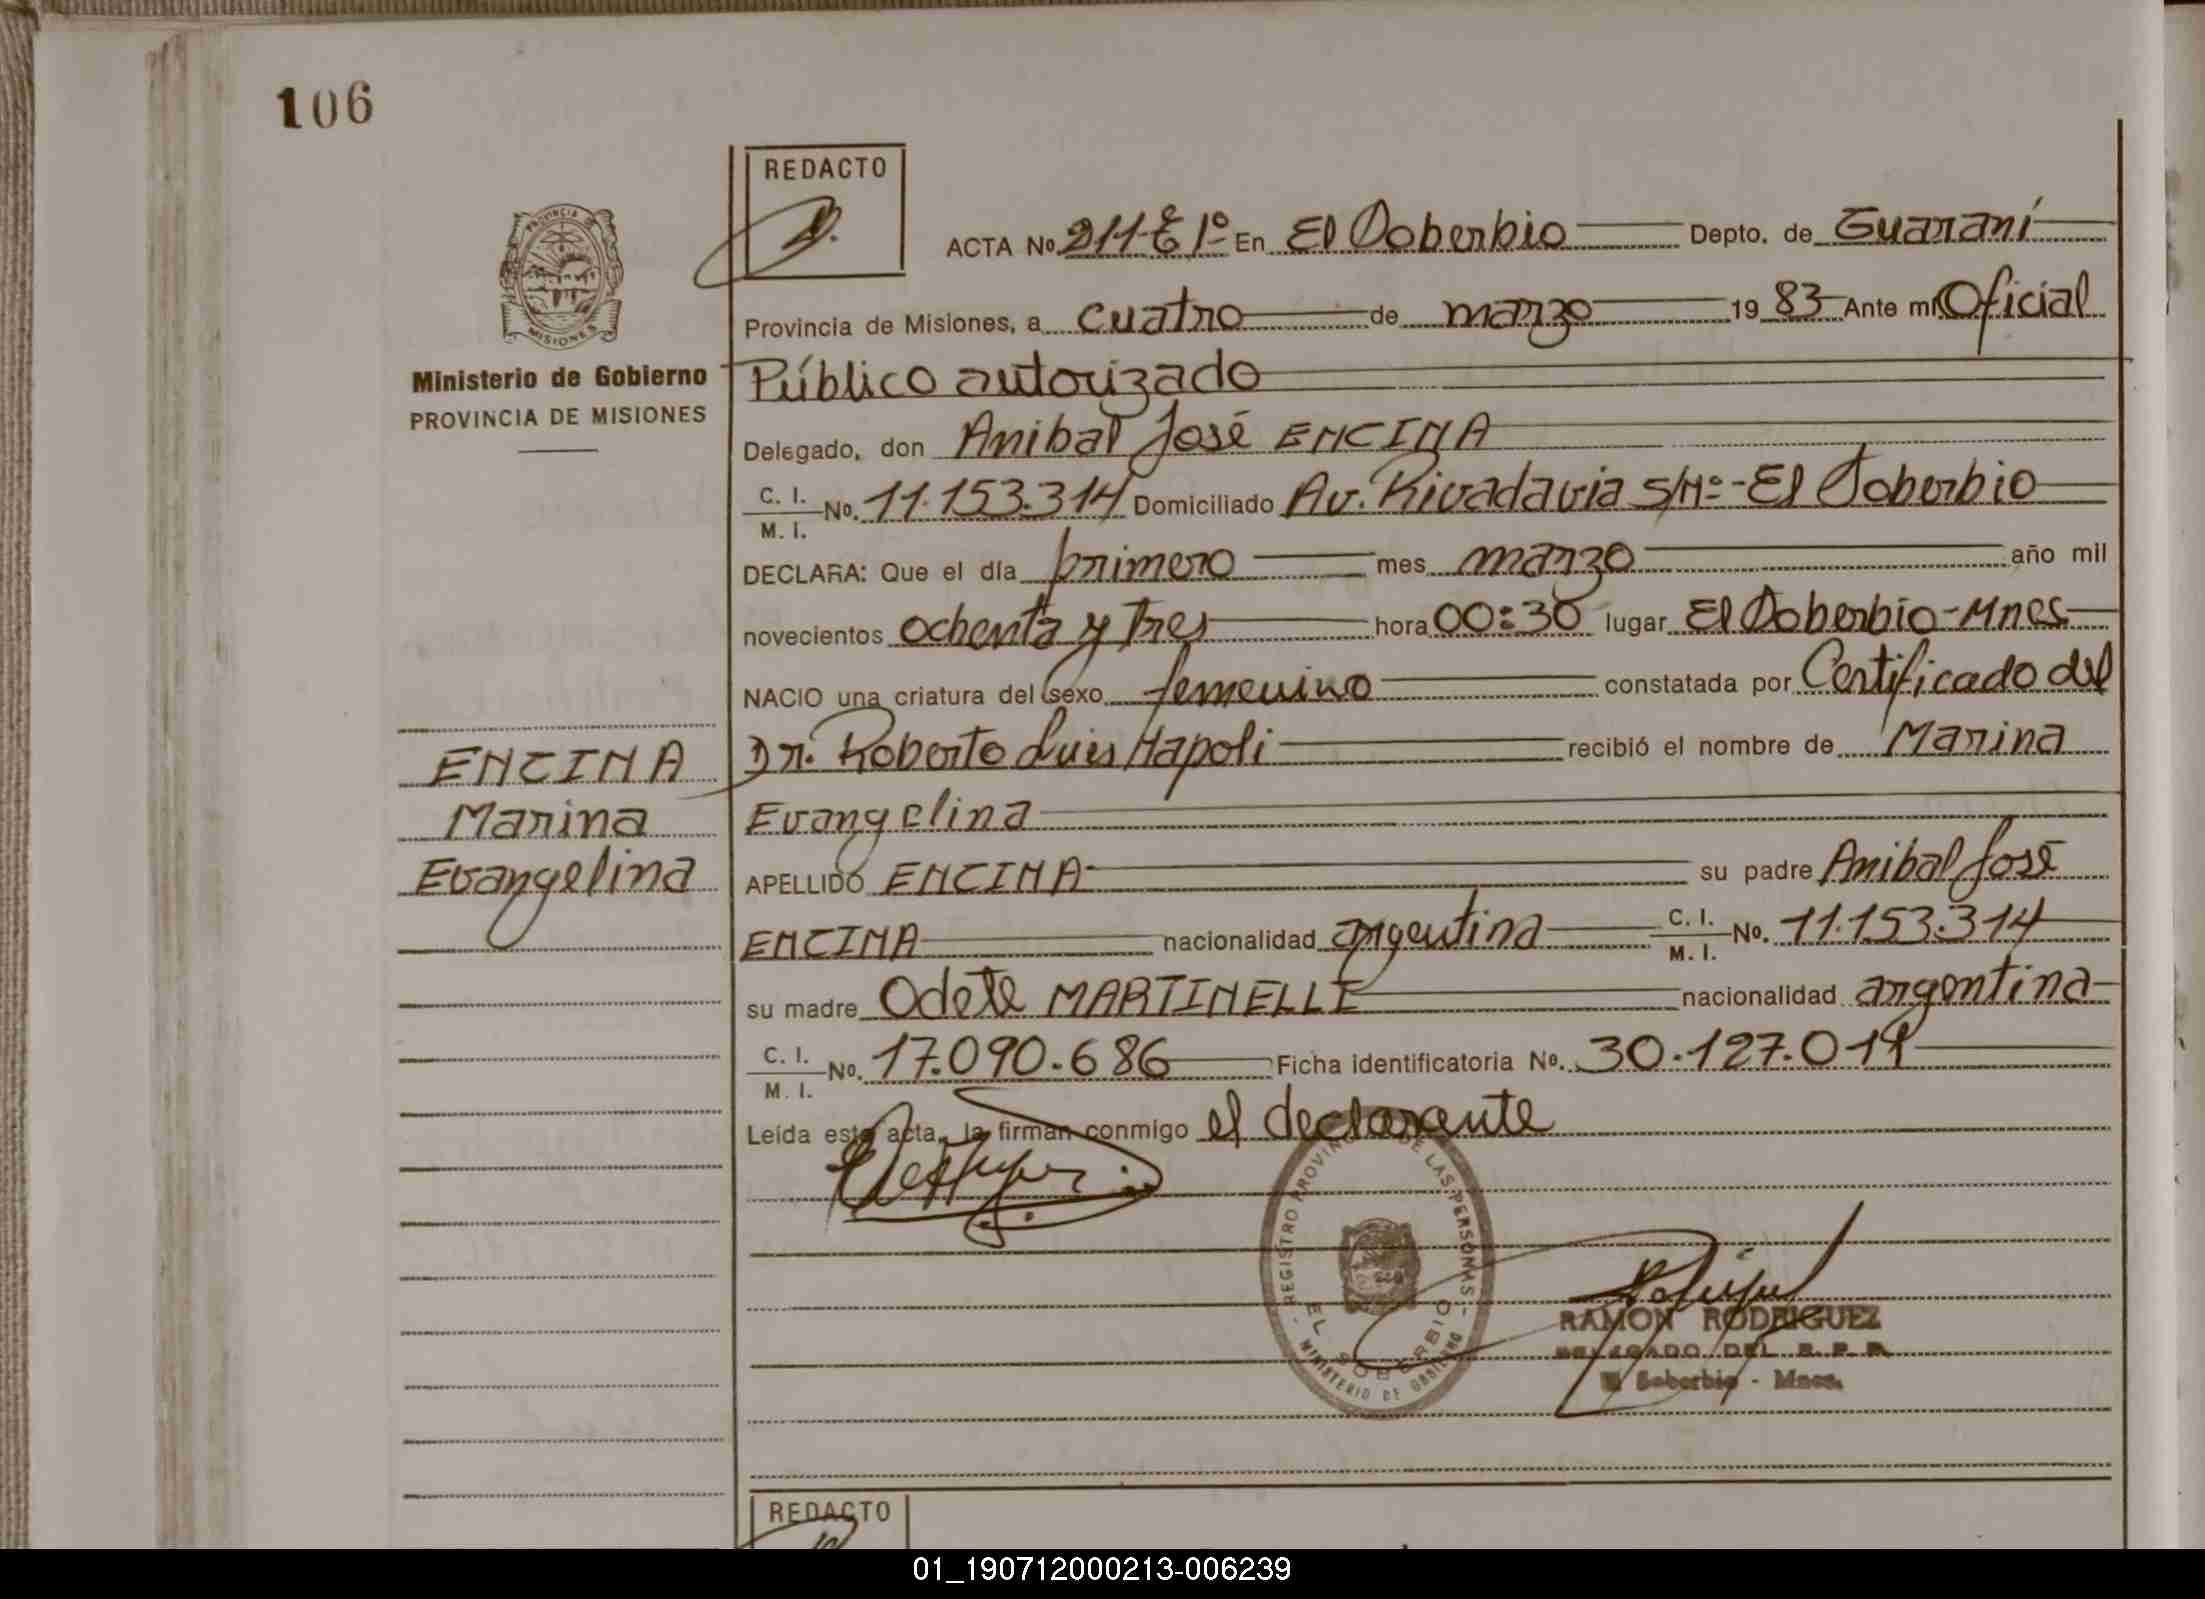 106
REDACTO
ACTA Nº 211-E 1º En El Soberbio Depto. de Guaraní
Provincia de Misiones, a cuatro de marzo 19 83 Ante mí Oficial
Público autorizado
Delegado, don Anibal José ENCINA
C. I.
M. I. No. 11.153.314 Domiciliado Av. Rivadavia S/Nº - El Soberbio
DECLARA: Que el día primero mes marzo año mil
novecientos ochenta y tres hora 00:30 lugar El Soberbio - Mnes
NACIO una criatura del sexo femenino constatada por Certificado del
Dr. Roberto Luis Napoli recibió el nombre de Marina
Evangelina
APELLIDO ENCINA su padre Anibal José
ENCINA nacionalidad argentina C. I.
M. I. No. 11.153.314
su madre Odete MARTINELLI nacionalidad argentina
C. I.
M. I. No. 17.090.686 Ficha identificatoria No. 30.127.019
Leída esta acta, la firman conmigo el declarante
PROVINCIA DE
MISIONES
Ministerio de Gobierno
PROVINCIA DE MISIONES
ENCINA
Marina
Evangelina
REGISTRO PROVIN DE LAS PERSONAS
EL SOBERBIO
MINISTERIO DE GOBIERNO
RAMON RODRIGUEZ
DELEGADO DEL R. P. P.
El Soberbio - Mnes.
REDACTO
01_190712000213-006239